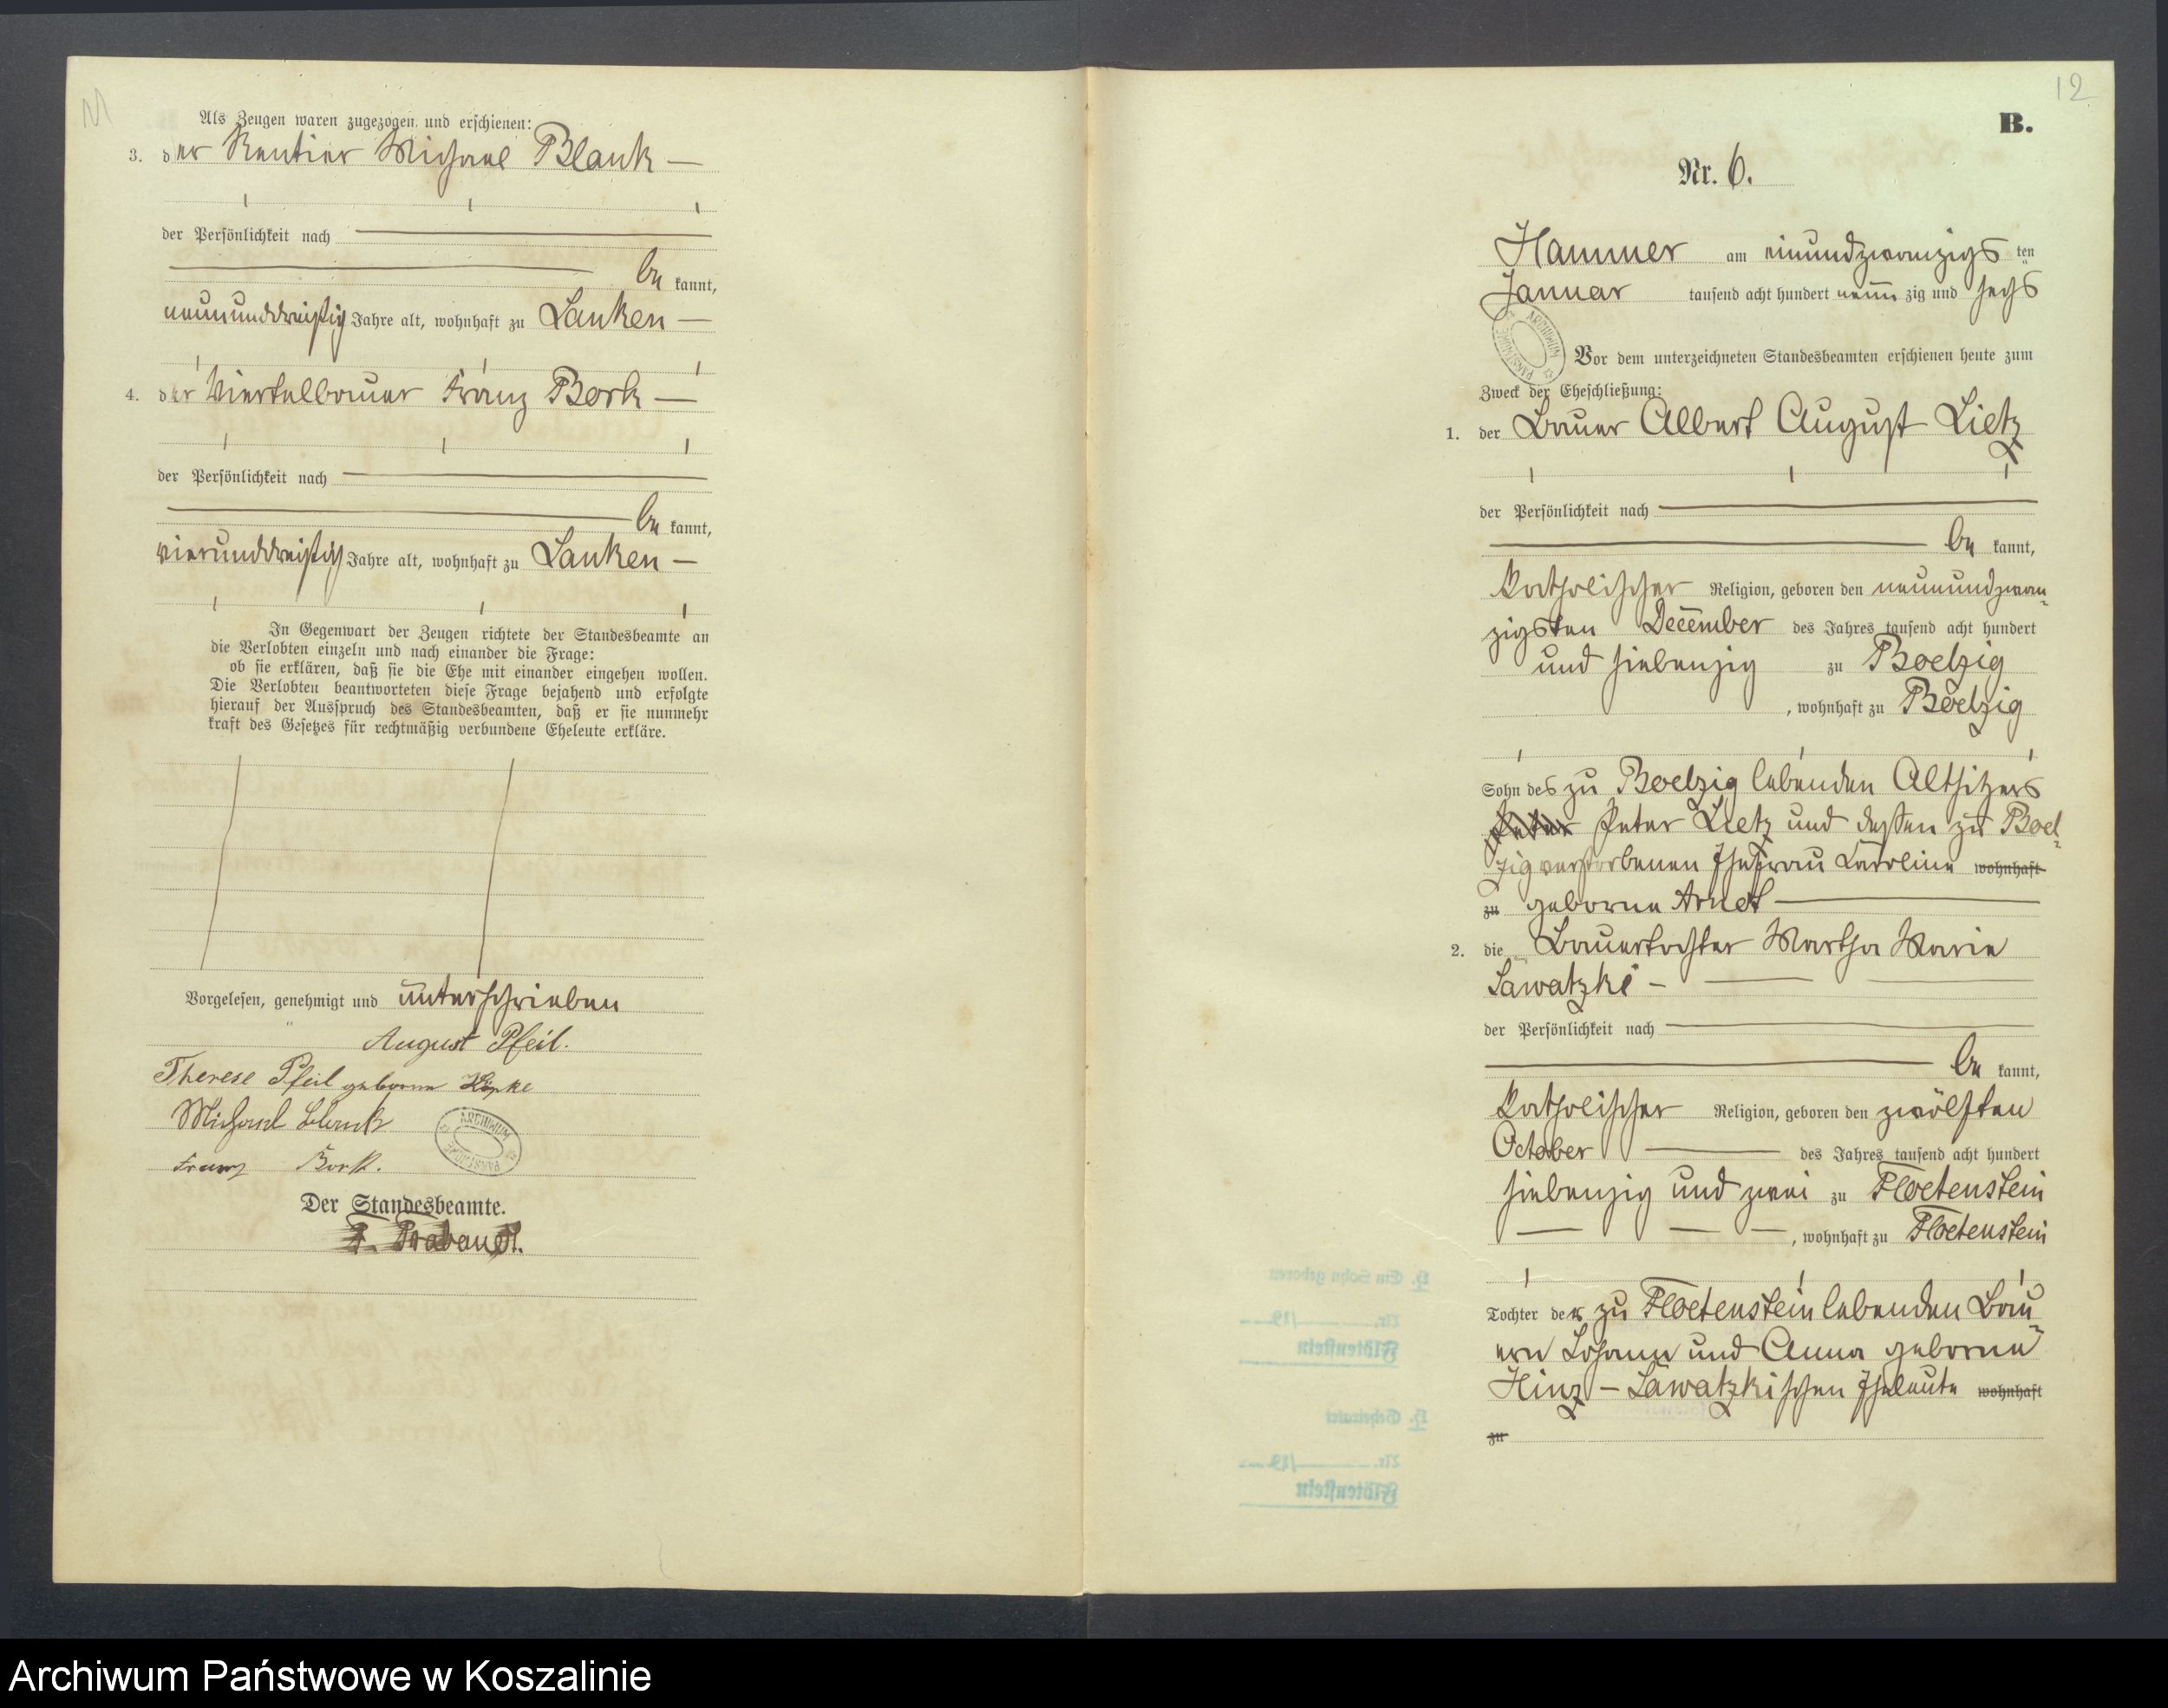 Als Zeugen waren zugezogen und erschienen:
3. der Rentier Michael Blank —
der Persönlichkeit nach
bekannt,
neununddreißig Jahre alt, wohnhaft zu Lanken —
4. der Viertelbauer Franz Bork —
der Persönlichkeit nach
bekannt,
vierunddreißig Jahre alt, wohnhaft zu Lanken —
In Gegenwart der Zeugen richtete der Standesbeamte an
die Verlobten einzeln und nach einander die Frage:
ob sie erklären, daß sie die Ehe mit einander eingehen wollen.
Die Verlobten beantworteten diese Frage bejahend und erfolgte
hierauf der Ausspruch des Standesbeamten, daß er sie nunmehr
kraft des Gesetzes für rechtmäßig verbundene Eheleute erkläre.
Vorgelesen, genehmigt und unterschrieben
August Pfeil.
Therese Pfeil geborne
Michael Blank
Franz Bork.
ARCHIWUM PAŃSTWOWE
Der Standesbeamte.
12
B.
Nr. 6.
Hammer am einundzwanzigsten
Januar tausend acht hundert neunzig und sechs
ARCHIWUM PAŃSTWOWE
Vor dem unterzeichneten Standesbeamten erschienen heute zum
Zweck der Eheschließung:
1. der Bauer Albert August Lietz
der Persönlichkeit nach
bekannt,
katholischer Religion, geboren den neunundzwan-
zigsten December des Jahres tausend acht hundert
und siebenzig zu Boelzig
, wohnhaft zu Boelzig
Sohn des zu Boelzig lebenden Altsitzers
Peter Lietz und dessen zu Boel-
zig verstorbenen Ehefrau Caroline wohnhaft
zu geborne Arndt
2. die Bauertochter Martha Marie
Sawatzki —
der Persönlichkeit nach
bekannt,
katholischer Religion, geboren den zwölften
October des Jahres tausend acht hundert
siebenzig und zwei zu Floetenstein
, wohnhaft zu Floetenstein
Tochter der zu Floetenstein lebenden Bau-
ern Johann und Anna geborne
Hinz – Sawatzkischen Eheleute wohnhaft
zu
Archiwum Państwowe w Koszalinie